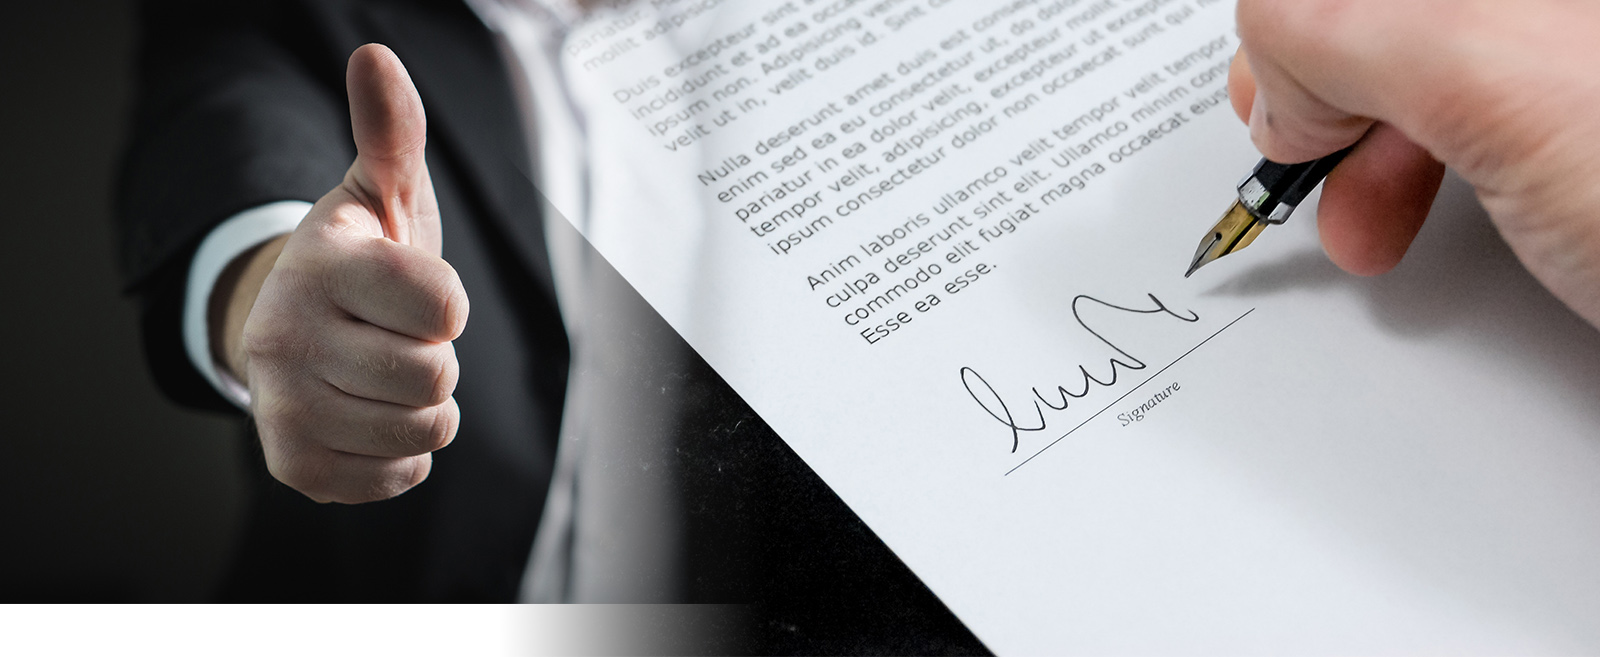 pariatur.
mollit adipisicing
Duis excepteur sint
incididunt et ad ea occaecat
ipsum non. Adipisicing
velit ut in, velit duis id. Sint
Nulla deserunt amet duis est
enim sed ea eu consectetur ut, do dolor
pariatur in ea dolor velit, excepteur mollit
tempor velit, adipisicing, excepteur ut
ipsum consectetur dolor non occaecat sunt qui
Anim laboris ullamco velit tempor velit tempor
culpa deserunt sint elit. Ullamco minim
commodo elit fugiat magna occaecat
Esse ea esse.
Signature